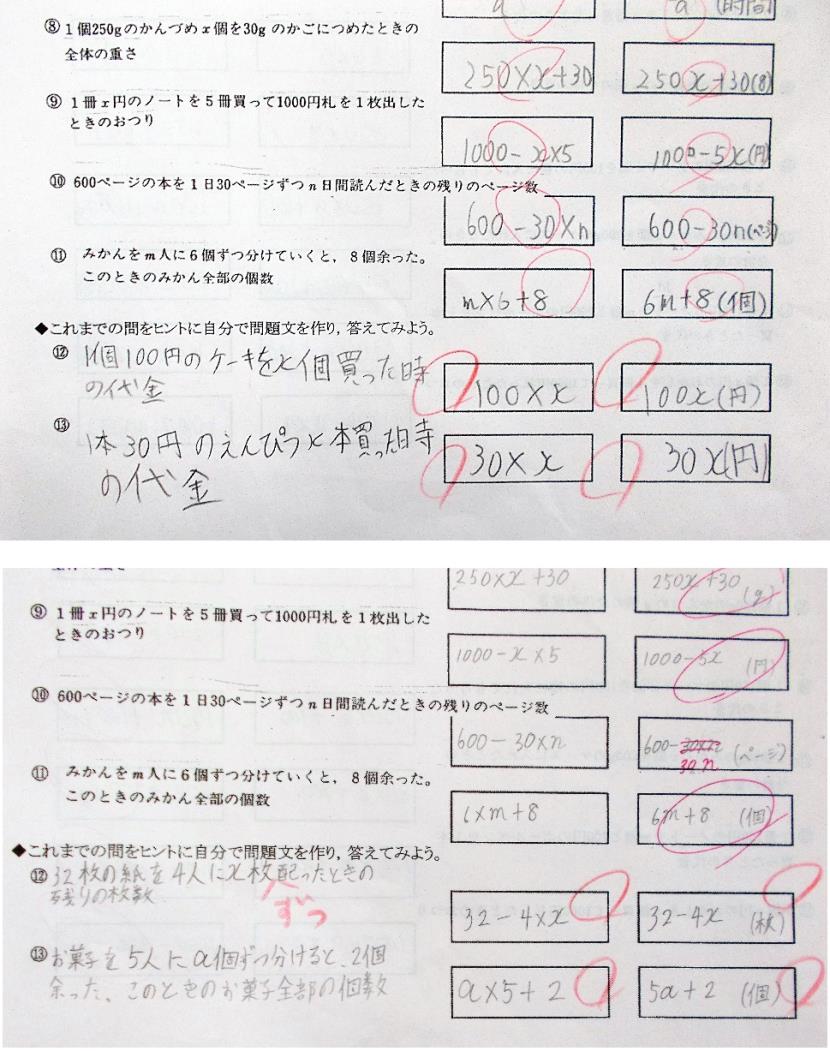 a
a (時間)
⑧ 1個250gのかんづめx個を30gのかごにつめたときの
全体の重さ
250×x+30
250x+30(g)
⑨ 1冊x円のノートを5冊買って1000円札を1枚出した
ときのおつり
1000-x×5
1000-5x(円)
⑩ 600ページの本を1日30ページずつn日間読んだときの残りのページ数
600-30×n
600-30n(ページ)
⑪ みかんをm人に6個ずつ分けていくと，8個余った。
このときのみかん全部の個数
m×6+8
6m+8(個)
◆これまでの問をヒントに自分で問題文を作り，答えてみよう。
⑫ 1個100円のケーキをx個買った時
の代金
100×x
100x(円)
⑬ 1本30円のえんぴつx本買った時
の代金
30×x
30x(円)
全体の重さ
250×x+30
250x+30 (g)
⑨ 1冊x円のノートを5冊買って1000円札を1枚出した
ときのおつり
1000-x×5
1000-5x (円)
⑩ 600ページの本を1日30ページずつn日間読んだときの残りのページ数
600-30×n
600-30×n (ページ)
30n
⑪ みかんをm人に6個ずつ分けていくと，8個余った。
このときのみかん全部の個数
6×m+8
6m+8 (個)
◆これまでの問をヒントに自分で問題文を作り，答えてみよう。
⑫ 32枚の紙を4人にx枚配ったときの
残りの枚数
ずつ
32-4×x
32-4x (枚)
⑬ お菓子を5人にa個ずつ分けると、2個
余った、このときのお菓子全部の個数
a×5+2
5a+2 (個)